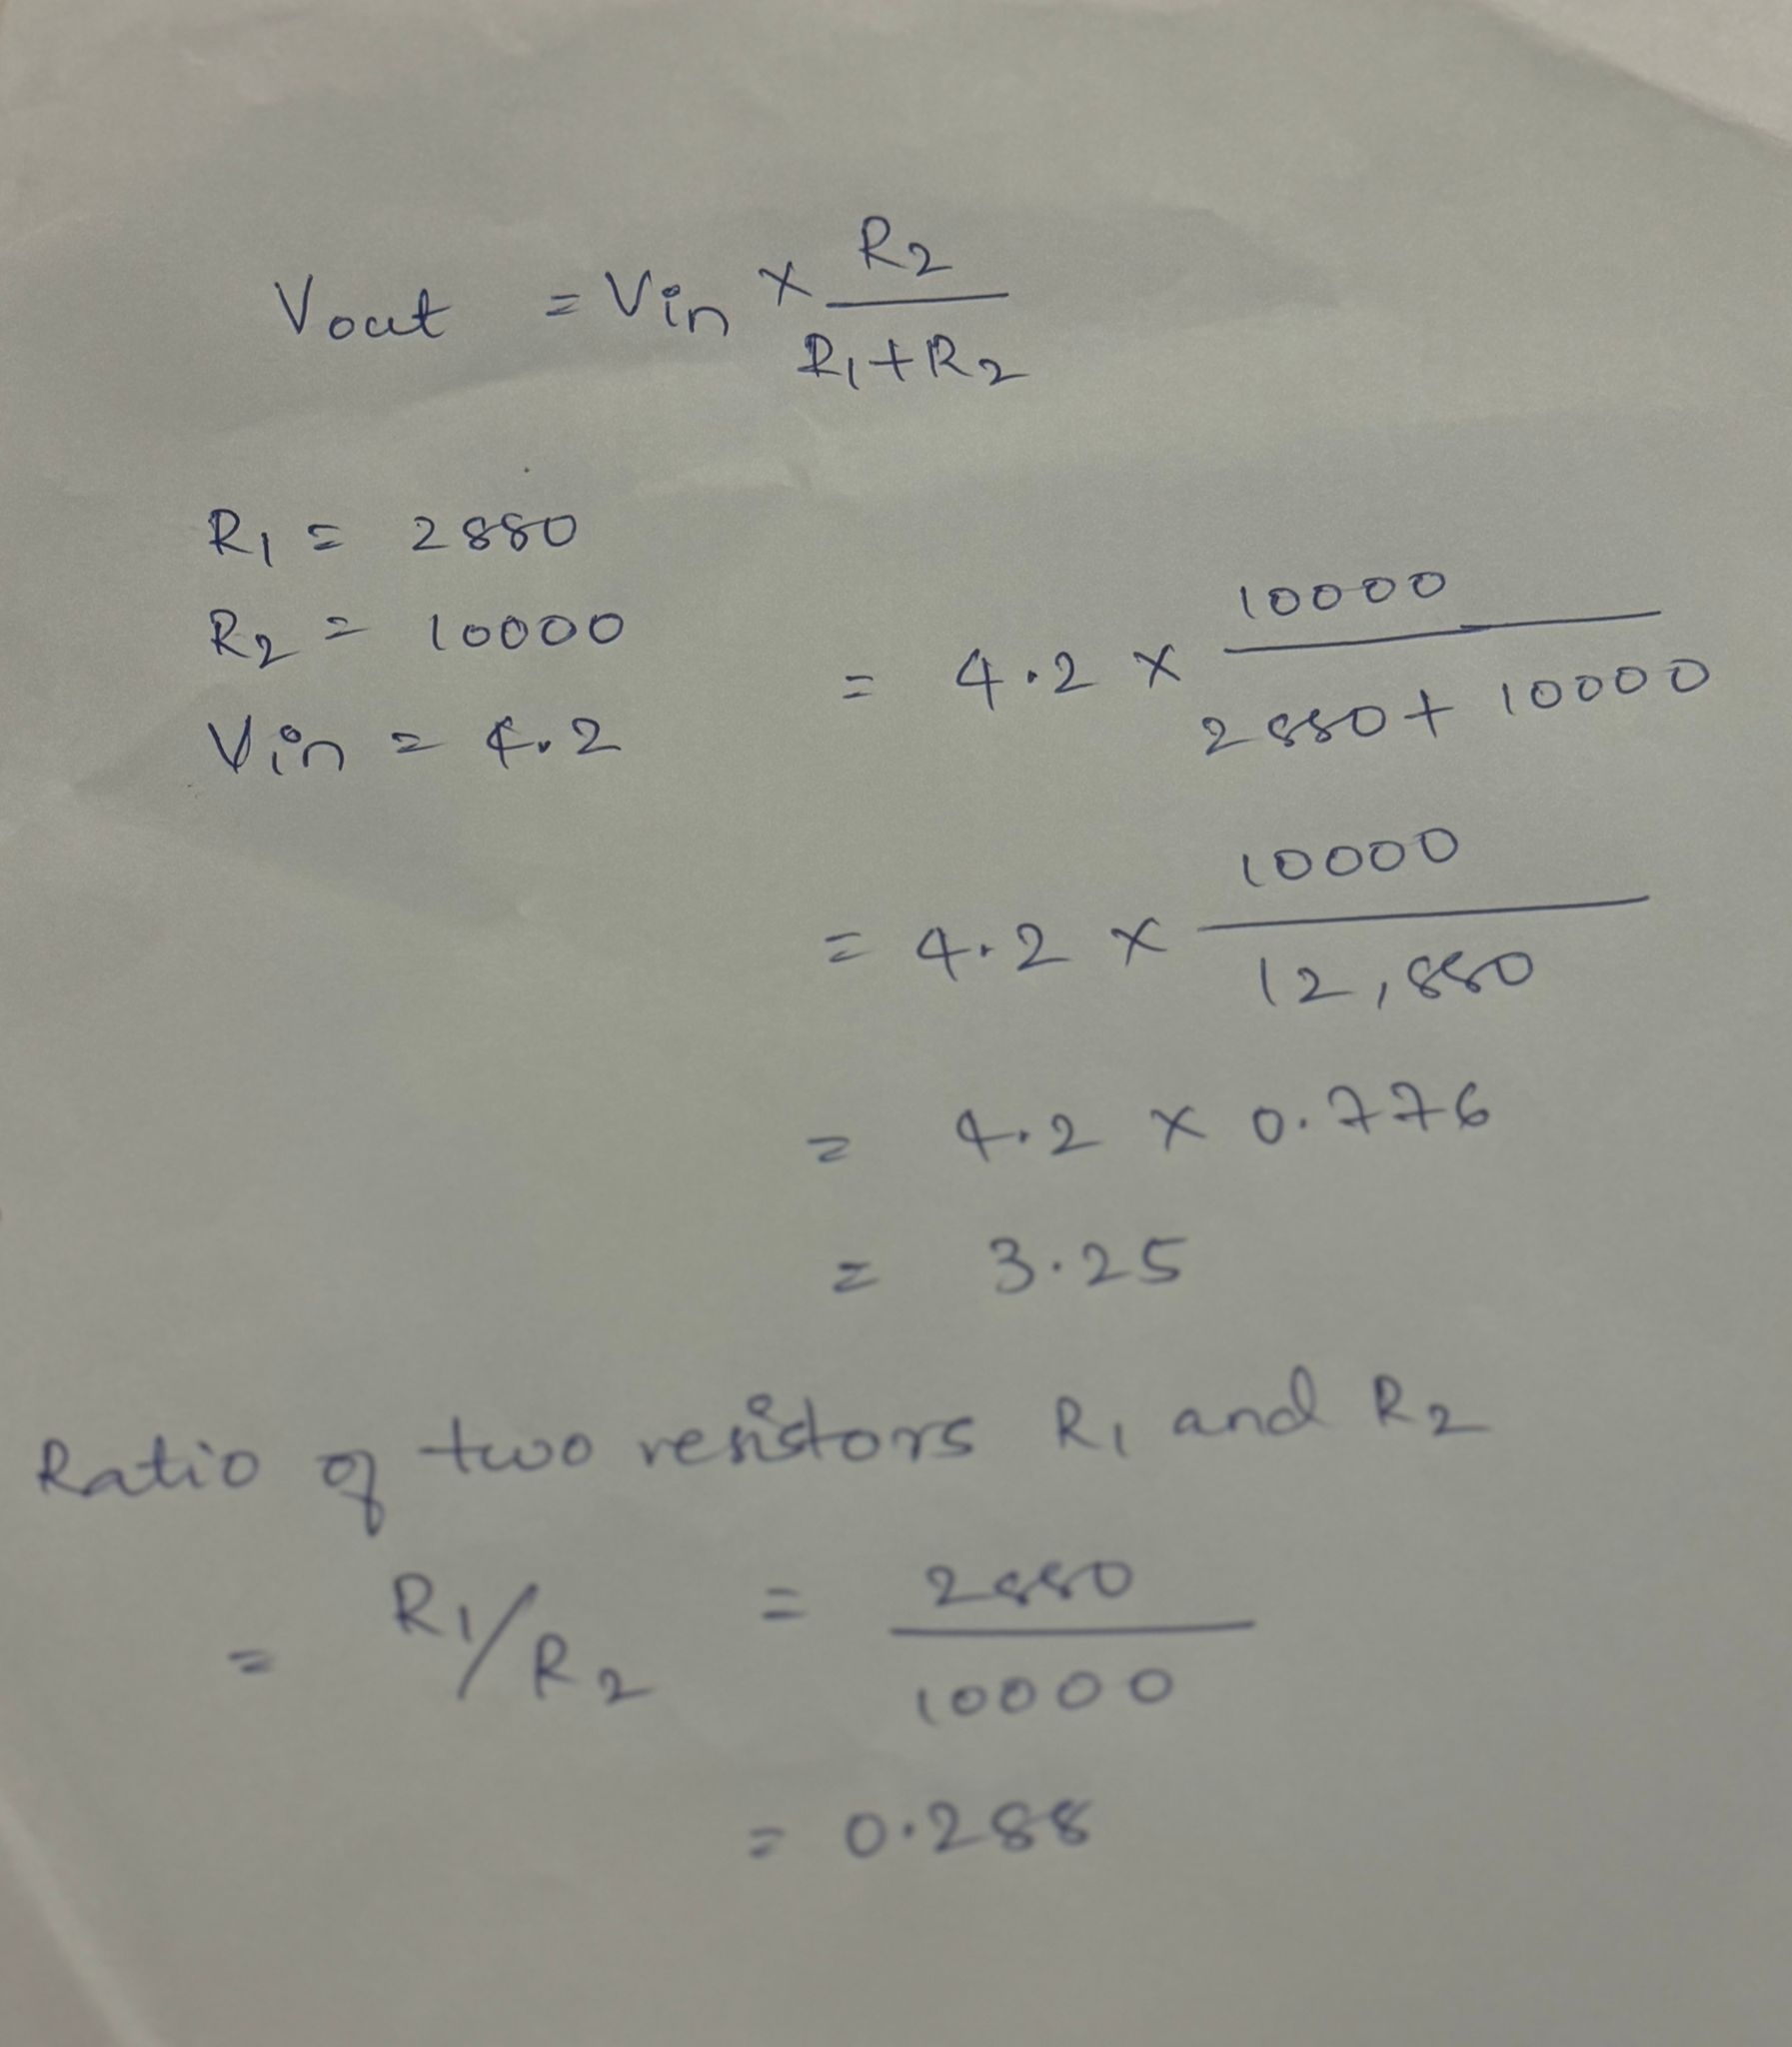 Vout = Vin × R2
R1+R2
R1 = 2880
R2 = 10000
Vin = 4.2
= 4.2 × 10000
2880+ 10000
= 4.2 × 10000
12,880
= 4.2 × 0.776
= 3.25
Ratio of two resistors R1 and R2
= R1/R2 = 2880
10000
= 0.288